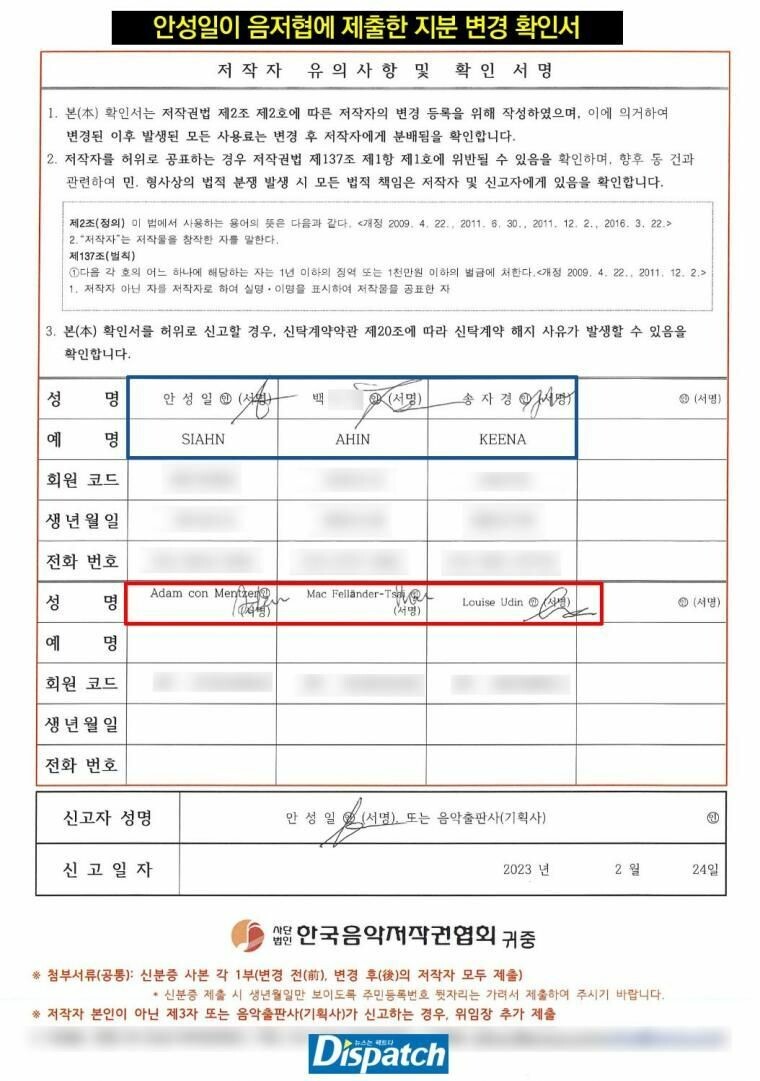 안성일이 음저협에 제출한 지분 변경 확인서
저작자 유의사항 및 확인 서명
1. 본(本) 확인서는 저작권법 제2조 제2호에 따른 저작자의 변경 등록을 위해 작성하였으며, 이에 의거하여
변경된 이후 발생된 모든 사용료는 변경 후 저작자에게 분배됨을 확인합니다.
2. 저작자를 허위로 공표하는 경우 저작권법 제137조 제1항 제1호에 위반될 수 있음을 확인하며, 향후 동 건과
관련하여 민. 형사상의 법적 분쟁 발생 시 모든 법적 책임은 저작자 및 신고자에게 있음을 확인합니다.
제2조(정의) 이 법에서 사용하는 용어의 뜻은 다음과 같다. <개정 2009. 4. 22., 2011. 6. 30., 2011. 12. 2., 2016. 3. 22.>
2. "저작자"는 저작물을 창작한 자를 말한다.
제137조(벌칙)
①다음 각 호의 어느 하나에 해당하는 자는 1년 이하의 징역 또는 1천만원 이하의 벌금에 처한다.<개정 2009. 4. 22., 2011. 12. 2.>
1. 저작자 아닌 자를 저작자로 하여 실명·이명을 표시하여 저작물을 공표한 자
3. 본(本) 확인서를 허위로 신고할 경우, 신탁계약약관 제20조에 따라 신탁계약 해지 사유가 발생할 수 있음을
확인합니다.
성 명 안성일 ㊞ (서명) 백 ㊞ (서명) 송자경 ㊞ (서명) ㊞ (서명)
예 명 SIAHN AHIN KEENA
회원 코드
생년월일
전화 번호
성 명 Adam con Mentzer㊞ (서명) Mac Felländer-Tsai ㊞ (서명) Louise Udin ㊞ (서명) ㊞ (서명)
예 명
회원 코드
생년월일
전화 번호
신고자 성명 안성일 ㊞ (서명). 또는 음악출판사(기획사) ㊞
신고일자 2023 년 2 월 24일
사단법인 한국음악저작권협회 귀중
※ 첨부서류(공통): 신분증 사본 각 1부(변경 전(前), 변경 후(後)의 저작자 모두 제출)
* 신분증 제출 시 생년월일만 보이도록 주민등록번호 뒷자리는 가려서 제출하여 주시기 바랍니다.
※ 저작자 본인이 아닌 제3자 또는 음악출판사(기획사)가 신고하는 경우, 위임장 추가 제출
뉴스는 팩트다
Dispatch